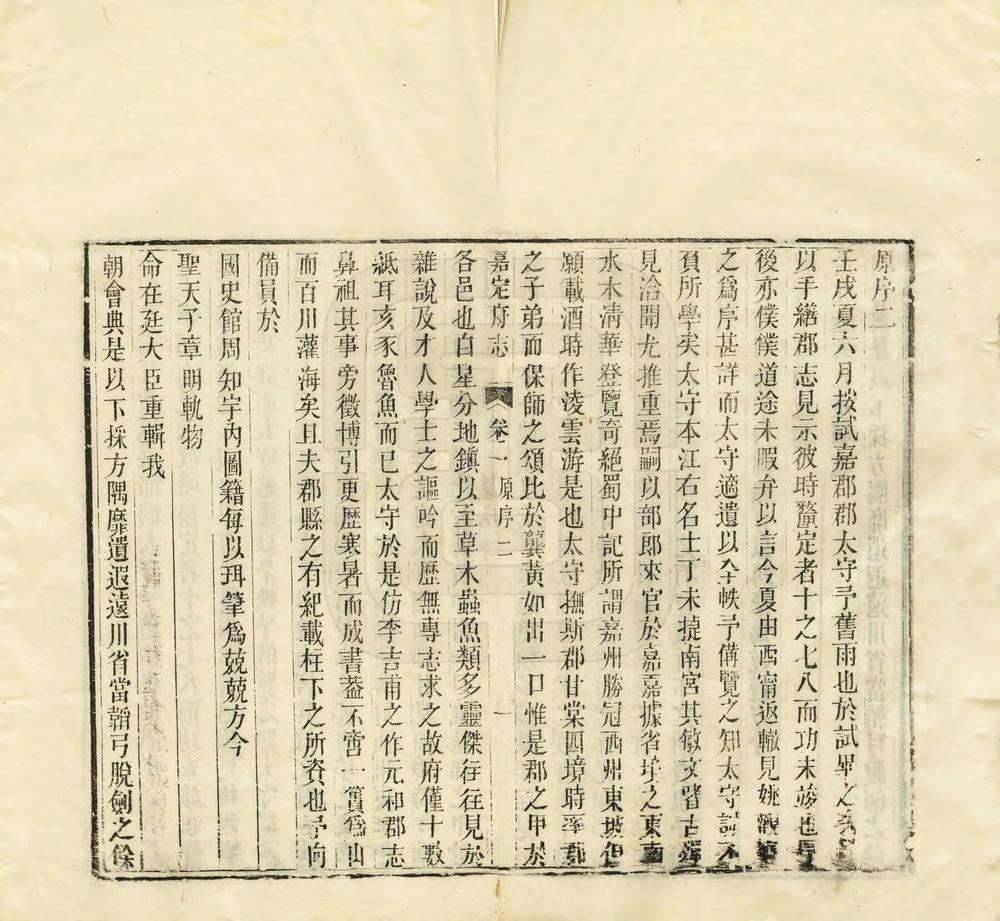 原序二
壬戌夏六月按試嘉郡郡太守予舊雨也於試畢之
以手繕郡志見示彼時釐定者十之七八而功未竣也
後亦僕僕道途未暇弁以言今夏由西甯返轍見姚
之為序甚詳而太守適遺以全帙予備覽之知太守誠不
負所學矣太守本江右名士丁未捷南宮其敏文嗜古
見洽聞尤推重焉嗣以部郎來官於嘉嘉據省境之東南
水木淸華登覽奇絕蜀中記所謂嘉州勝冠西州東坡但
願載酒時作凌雲游是也太守撫斯郡甘棠四境時率郡
之子弟而保師之頌比於龔黃如出一口惟是郡之甲於
嘉定府志 卷一 原序二 一
各邑也自星分地鎭以至草木蟲魚類多靈傑往往見於
雜說及才人學士之謳吟而歷無專志求之故府僅十數
紙耳亥豕魯魚而已太守於是仿李吉甫之作元和郡志
鼻祖其事旁徵博引更歷寒暑而成書葢不啻一簣為山
而百川灌海矣且夫郡縣之有紀載柱下之所資也予向
備員於
國史館周知宇內圖籍每以珥筆為兢兢方今
聖天子章明軌物
命在廷大臣重輯我
朝會典是以下採方隅靡遺遐遠川省當韜弓脫劍之餘